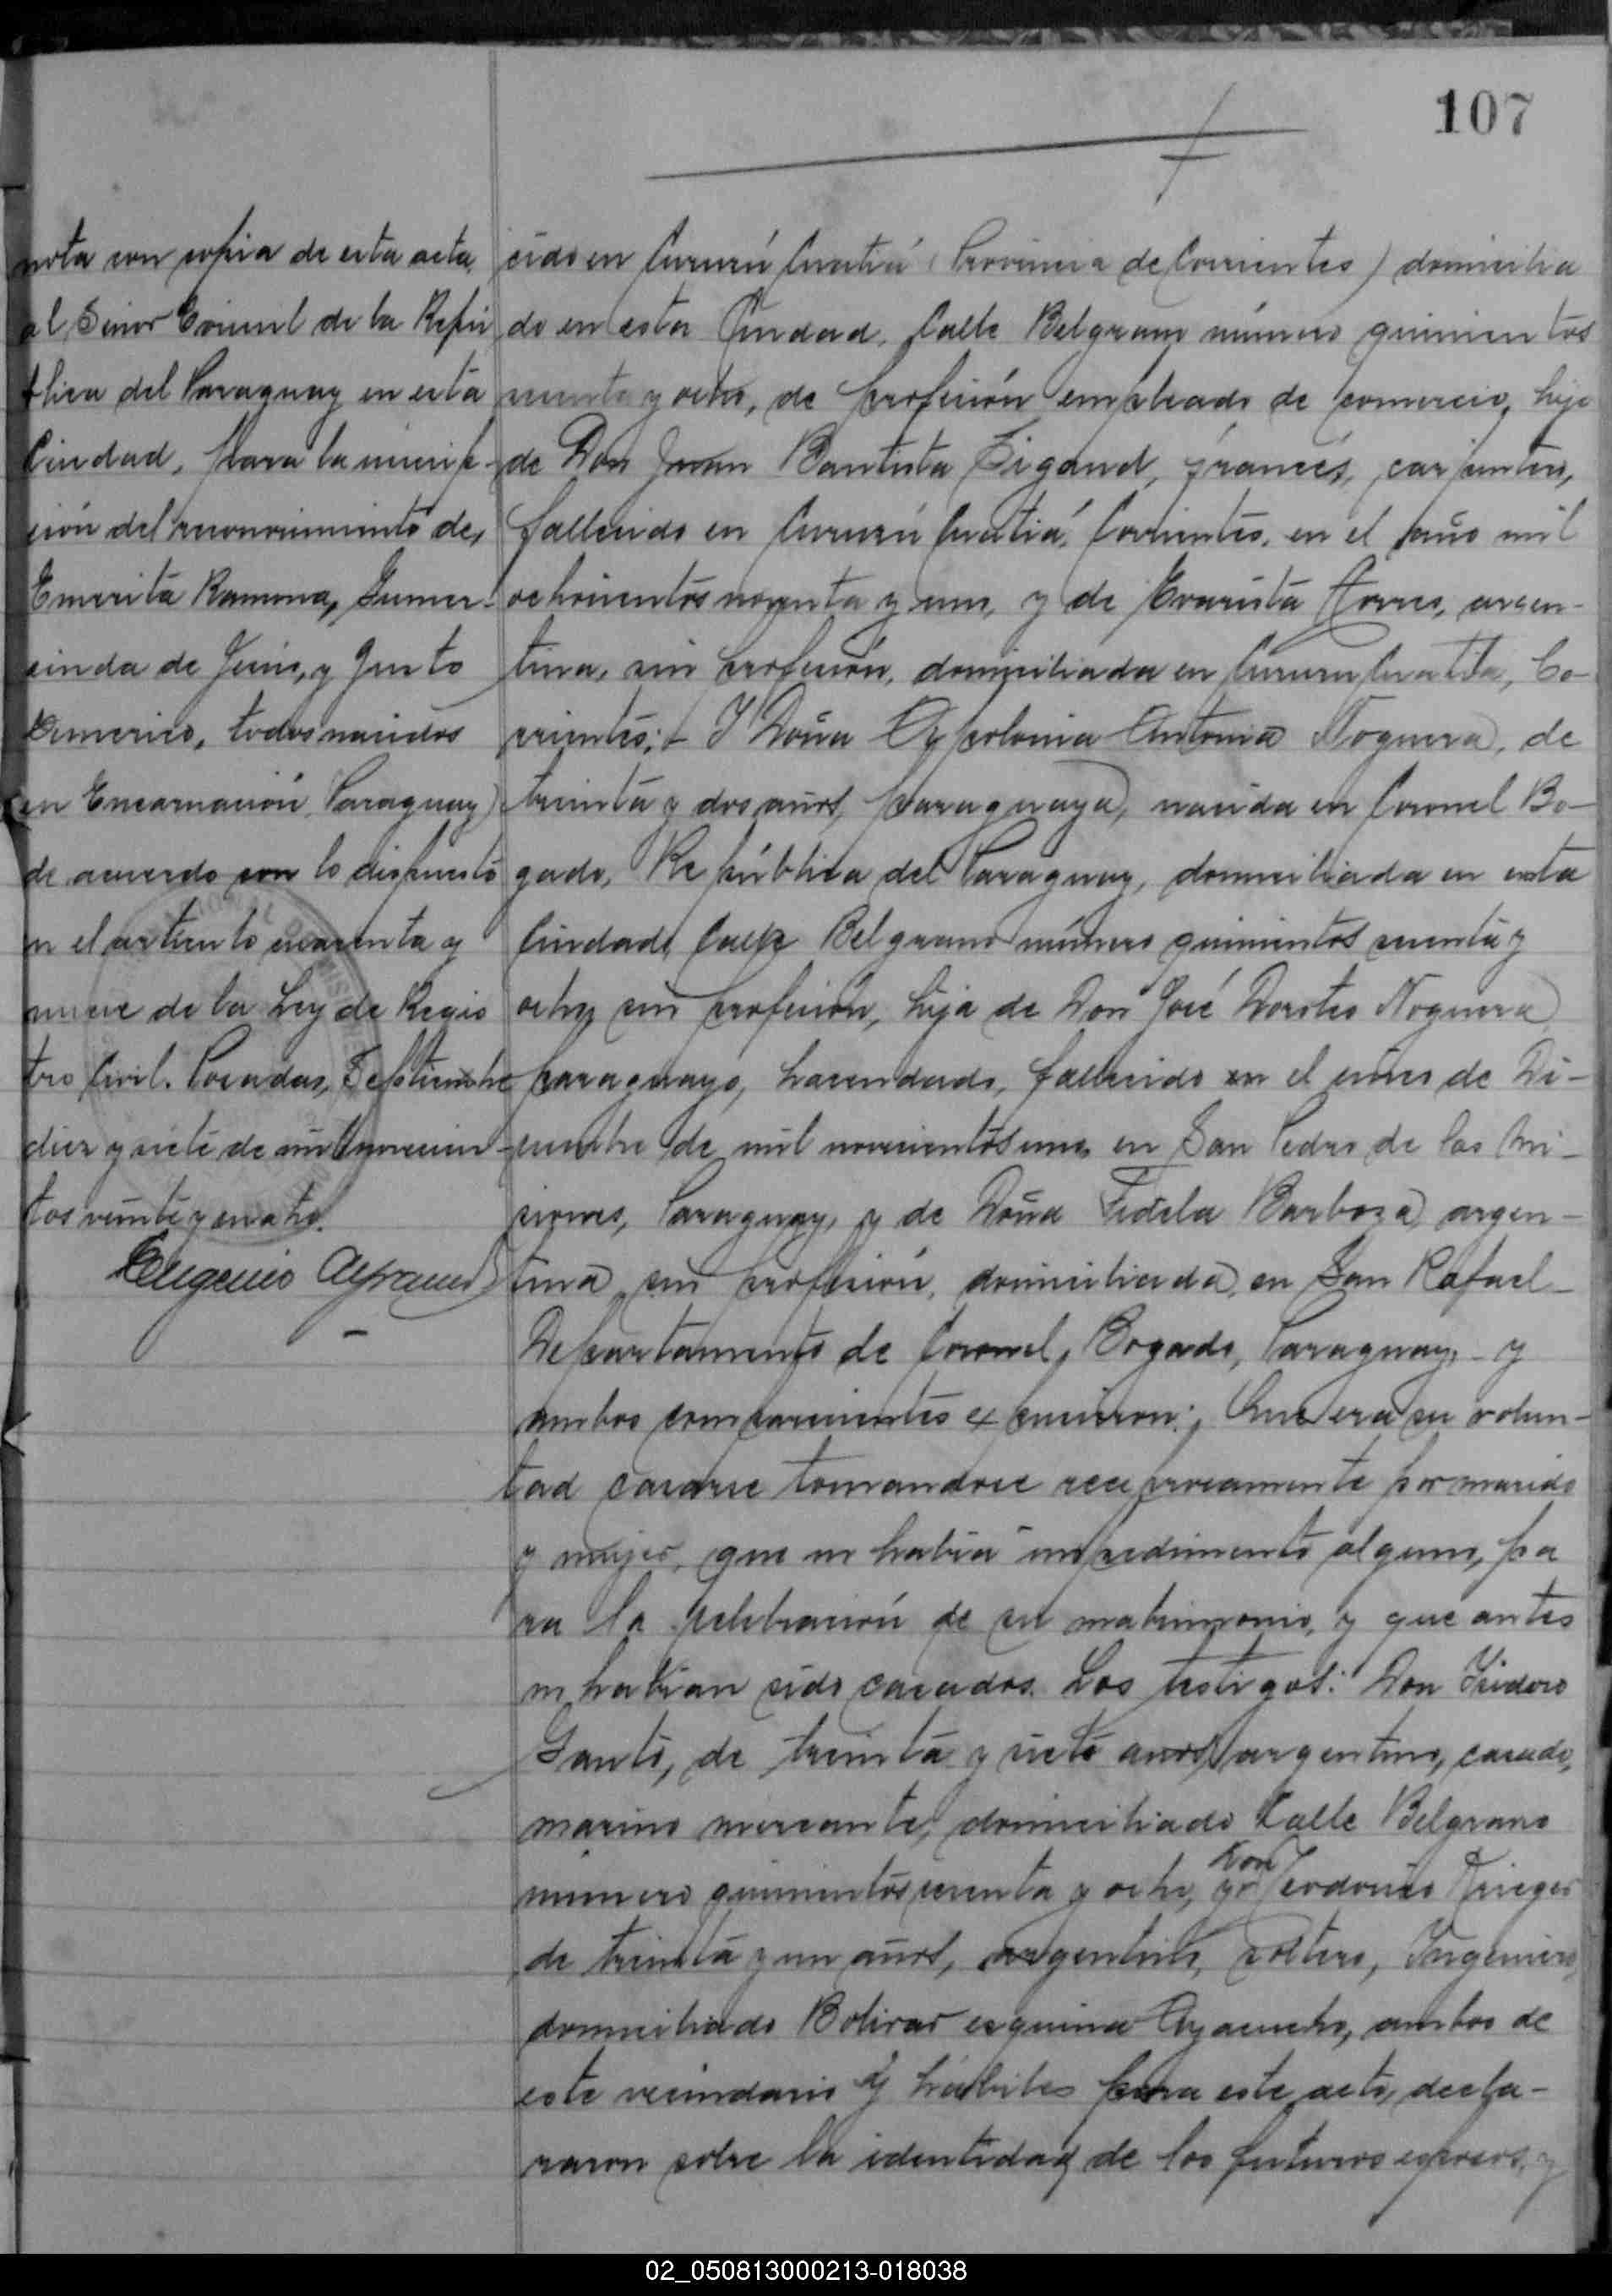 107
nota con copia de esta acta
al Señor Cónsul de la Repú
blica del Paraguay en esta
Ciudad, para la inscrip-
ción del reconocimiento de,
Emerita Ramona, Gumer-
sinda de Jesús, y Justo
todos nacidos
en Encarnación, Paraguay)
de acuerdo con lo dispuesto
en el artículo cuarenta y
nueve de la Ley de Regis
tro Civil. Posadas, Septiembre
diez y siete de mil novecien-
tos veinte y cuatro.
Eugenio
cido en Curuzú Cuatiá (Provincia de Corrientes) domicilia
do en esta Ciudad, Calle Belgrano número quinientos
y ocho, de profesión empleado de comercio, hijo
de Don Juan Bautista Sigand, francés, carpintero,
fallecido en Curuzú Cuatiá, Corrientes, en el año mil
ochocientos noventa y uno, y de Evarista argen-
tina, sin profesión, domiciliada en Curuzu Cuatia, Co-
rrientes; - Y Doña Apolonia Antonia Noguera, de
treinta y dos años, paraguaya, nacida en Coronel Bo-
gado, República del Paraguay, domiciliada en esta
Ciudad, Calle Belgrano número quinientos y
ocho, sin profesión, hija de Don José Noguera
paraguayo, hacendado, fallecido en el mes de Di-
ciembre de mil novecientos uno, en San Pedro de las Mi-
siones, Paraguay, y de Doña Fidela Barboza, argen-
tina, sin profesión, domiciliada, en San Rafael -
Departamento de Coronel Bogado, Paraguay, - y
ambos comparecientes expusieron: Que era su volun-
tad casarse tomandose reciprocamente por marido
y mujer, que no habia impedimento alguno, pa
ra la celebración de su matrimonio, y que antes
no habian sido casados. Los testigos: Don Isidoro
de treinta y siete años, argentino, casado,
marino mercante, domiciliado Calle Belgrano
número quinientos y ocho, y don Teodorico Krieger
de treinta y un años, argentino, soltero, Ingeniero,
domiciliado Bolivar esquina Ayacucho, ambos de
este vecindario y hábiles para este acto, decla-
raron sobre la identidad de los futuros esposos, y
02_050813000213-018038